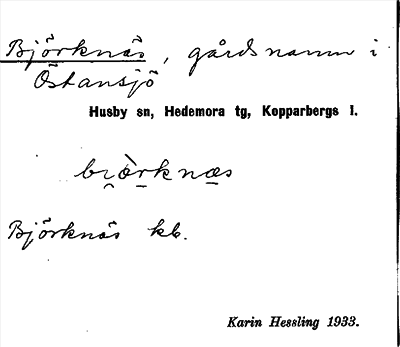 Björknäs, gårdsnamn i
Östansjö
Husby sn, Hedemora tg, Kopparbergs l.
bi̯ö̀rknæs
Björknäs kb.
Karin Hessling 1933.